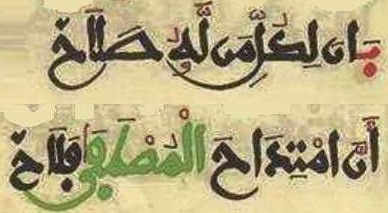 بَانَ لِكُلِّ مَن لَّهُ صَلَاحْ
أَنَّ امْتِدَاحَ الْمُصْطَفَى فَلَاحْ